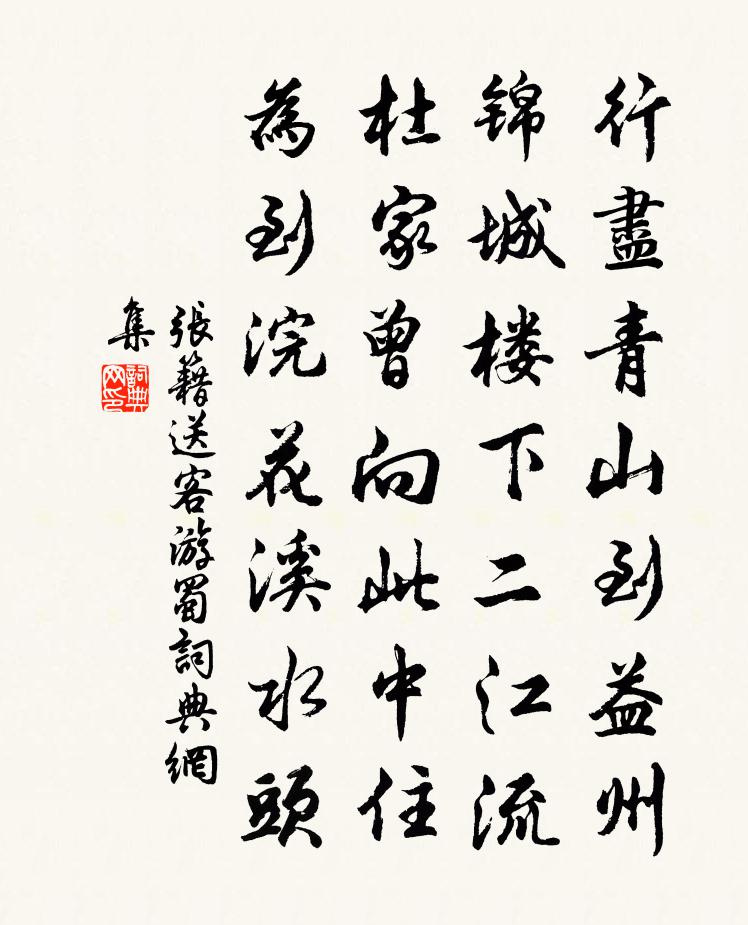 行盡青山到益州
锦城楼下二江流
杜家曾向此中住
為到浣花溪水頭
張籍送客游蜀詞典網
集
詞典
网印